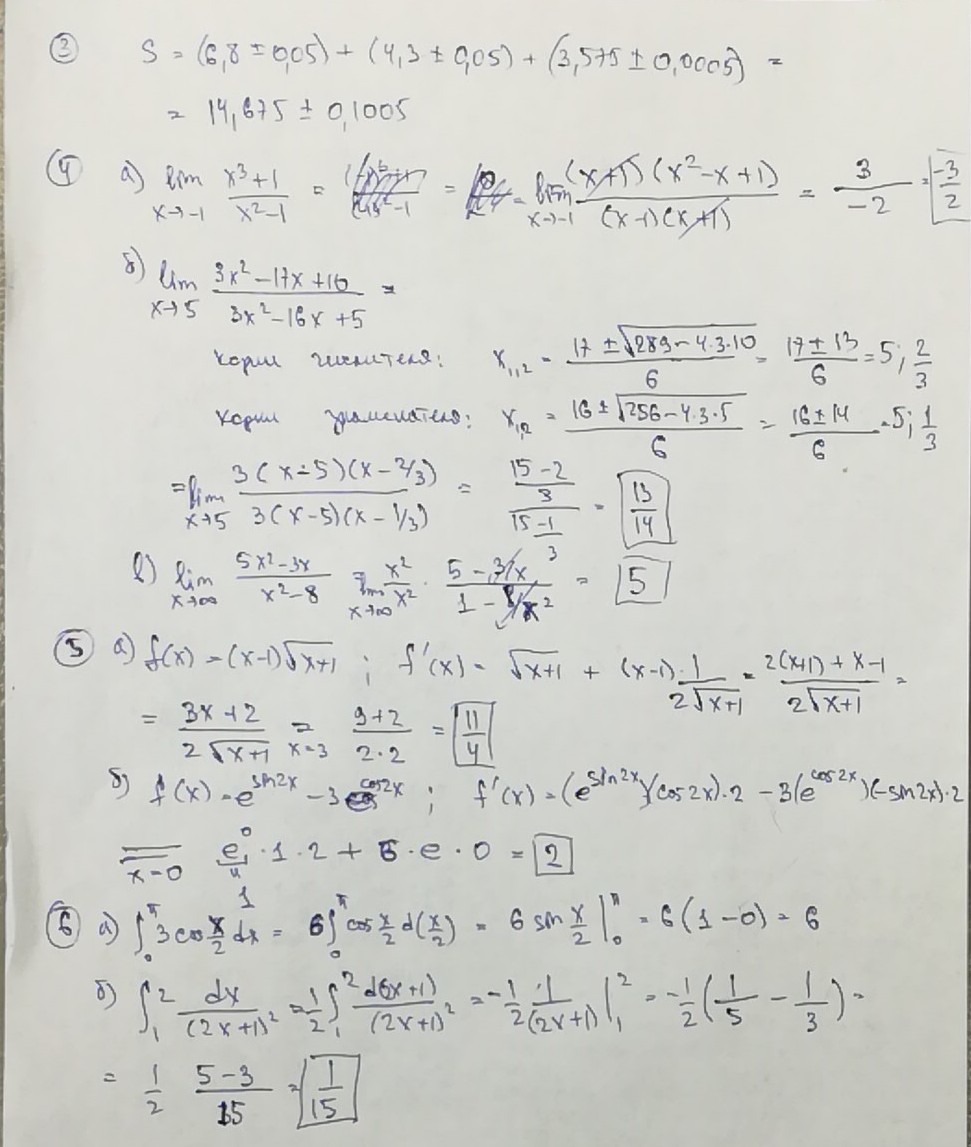 ③ S = (6,8 ± 0,05) + (4,3 ± 0,05) + (3,575 ± 0,0005) =
= 14,675 ± 0,1005
④ а) lim x→-1 (x³+1)/(x²-1) = = = lim x→-1 (x+1)(x²-x+1)/((x-1)(x+1)) = 3/-2 = -3/2
б) lim x→5 (3x²-17x+10)/(3x²-16x+5) =
корни числителя: x₁,₂ = (17 ± √(289-4·3·10))/6 = (17±13)/6 = 5; 2/3
корни знаменателя: x₁,₂ = (16 ± √(256-4·3·5))/6 = (16±14)/6 = 5; 1/3
= lim x→5 3(x-5)(x-2/3)/(3(x-5)(x-1/3)) = ((15-2)/3)/((15-1)/3) = 13/14
в) lim x→∞ (5x²-3x)/(x²-8) = lim x→∞ x²/x² · (5-3/x)/(1-8/x²) = 5
⑤ а) f(x) = (x-1)√(x+1) ; f'(x) = √(x+1) + (x-1)·1/(2√(x+1)) = (2(x+1)+x-1)/(2√(x+1)) =
= (3x+2)/(2√(x+1)) = x=3 (9+2)/(2·2) = 11/4
б) f(x) = e^(sin2x) - 3e^(cos2x) ; f'(x) = (e^(sin2x))(cos2x)·2 - 3(e^(cos2x))(-sin2x)·2
= x=0 e⁰ · 1 · 2 + 6 · e · 0 = 2
" 1
⑥ а) ∫₀^π 3cos x/2 dx = 6∫₀^π cos x/2 d(x/2) = 6 sin x/2 |₀^π = 6(1-0) = 6
б) ∫₁² dx/(2x+1)² = 1/2 ∫₁² d(2x+1)/(2x+1)² = -1/2 1/(2x+1) |₁² = -1/2 (1/5 - 1/3) =
= 1/2 (5-3)/15 = 1/15